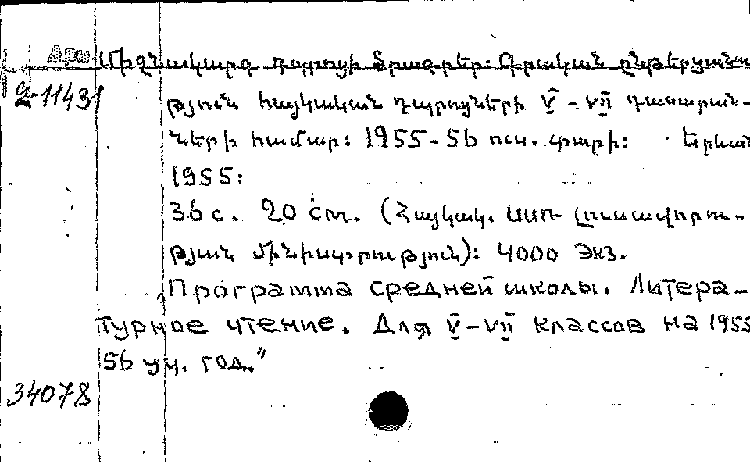 Միջնակարգ դպրոցի ծրագրեր: Գրական ընթերցանու-
2-11431
թյուն հայկական դպրոցների V-VII դասարան-
ների համար: 1955-56 ուս. տարի: Երևան
1955:
36 с. 20 см. (Հայկակ. ՍՍՌ լուսավորու-
թյան մինիստրություն): 4000 экз.
Программа средней школы. Литера-
турное чтение. Для V-VII классов на 1955
56 уч. год."
34078